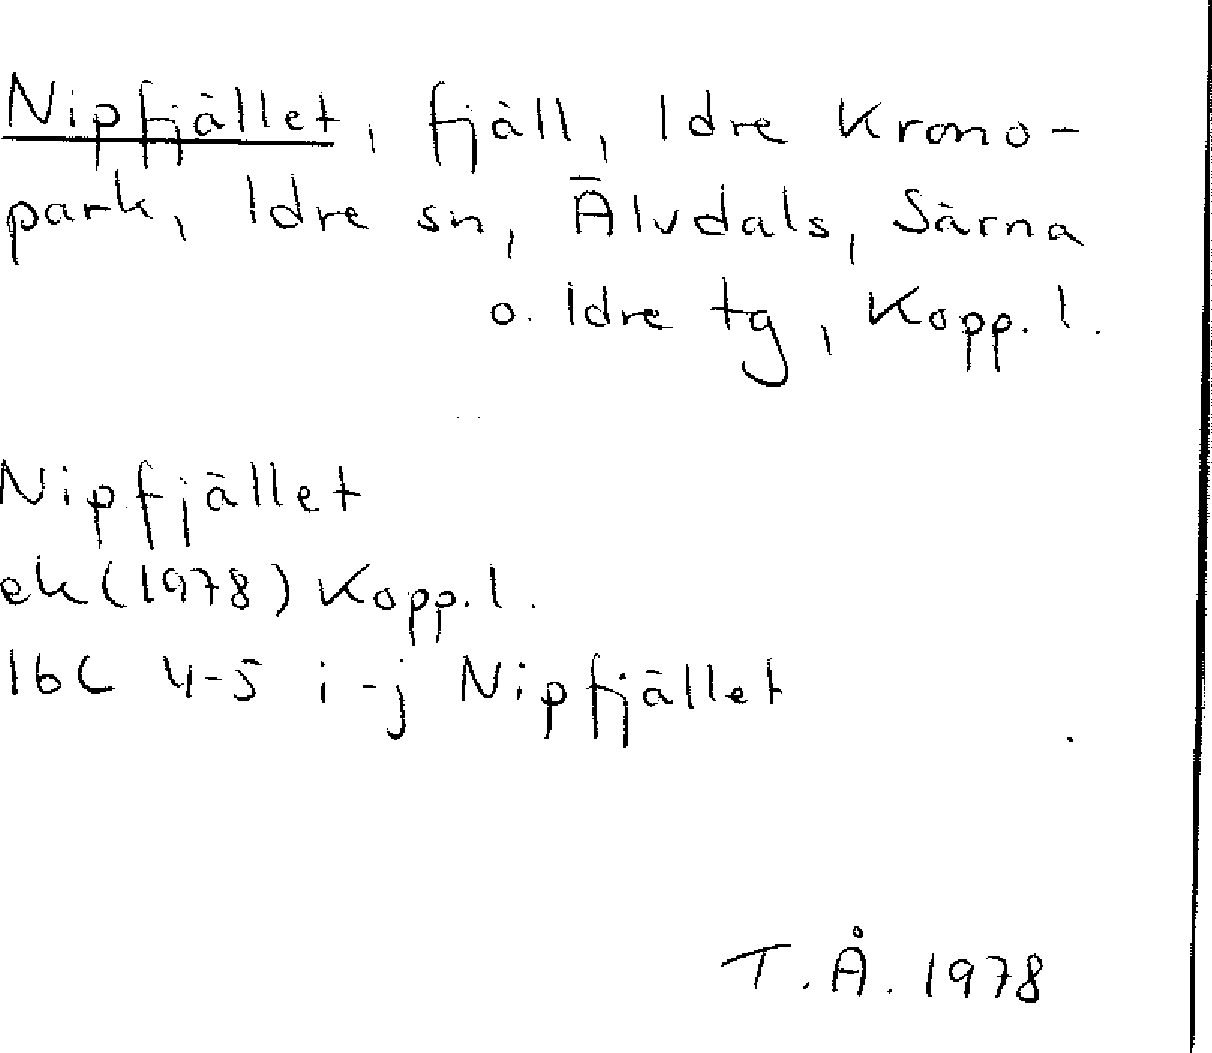 Nipfjället, fjäll, Idre Krono-
park, Idre sn, Älvdals, Särna
o. Idre tg, Kopp. l.
Nipfjället
ek (1978) Kopp. l.
16C 4-5 i-j Nipfjället
T. Å. 1978